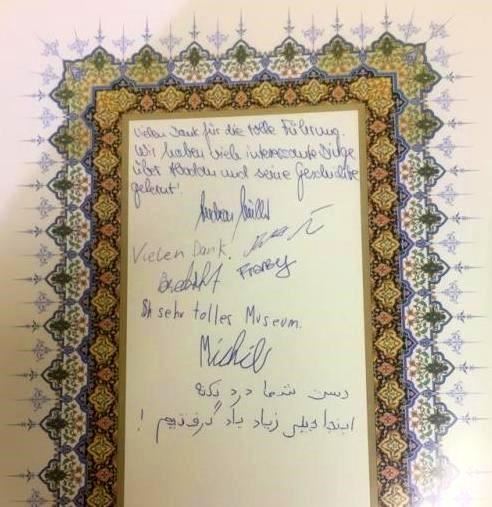 Vielen Dank für die tolle Führung.
Wir haben viele interessante Dinge
über Abadan und seine Geschichte
gelernt!
Vielen Dank.
sehr tolles Museum.
دست شما درد نکنه
اینجا خیلی زیاد یاد گرفتیم !